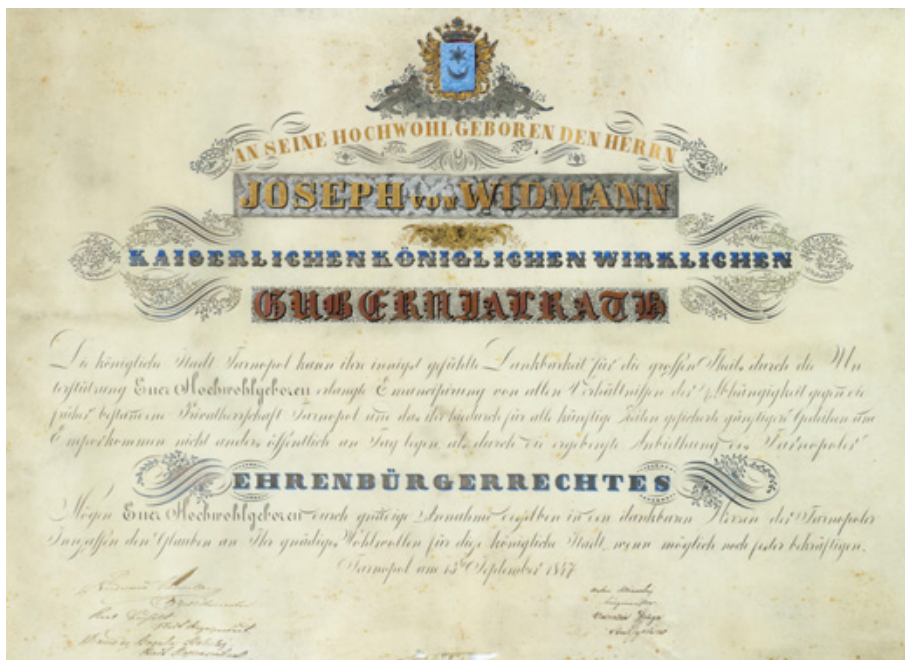 AN SEINE HOCHWOHLGEBOREN DEN HERRN
JOSEPH VON WIDMANN
KAISERLICHEN KÖNIGLICHEN WIRKLICHEN
GUBERNIALRATH
Die königliche Stadt Tarnopol kann ihre innigst gefühlte Dankbarkeit für die großen Theils durch die Un
terstützung Euer Hochwohlgeboren erlangte Emancipirung von allen Verhältnissen der Abhängigkeit gegen die
früher bestandene Privatherrschaft Tarnopol und das ihr hiedurch für alle künftige Zeiten gesicherte günstigere Gedeihen und
Emporkommen nicht anders öffentlich an Tag legen, als durch die ergebenste Anbiethung des Tarnopoler
EHRENBÜRGERRECHTES
Mögen Euer Hochwohlgeboren durch gnädige Annahme desselben in den dankbaren Herzen der Tarnopoler
Innsaßen den Glauben an Ihr gnädiges Wohlwollen für diese königliche Stadt, wenn möglich noch fester bekräftigen.
Tarnopol am 15 September 1847